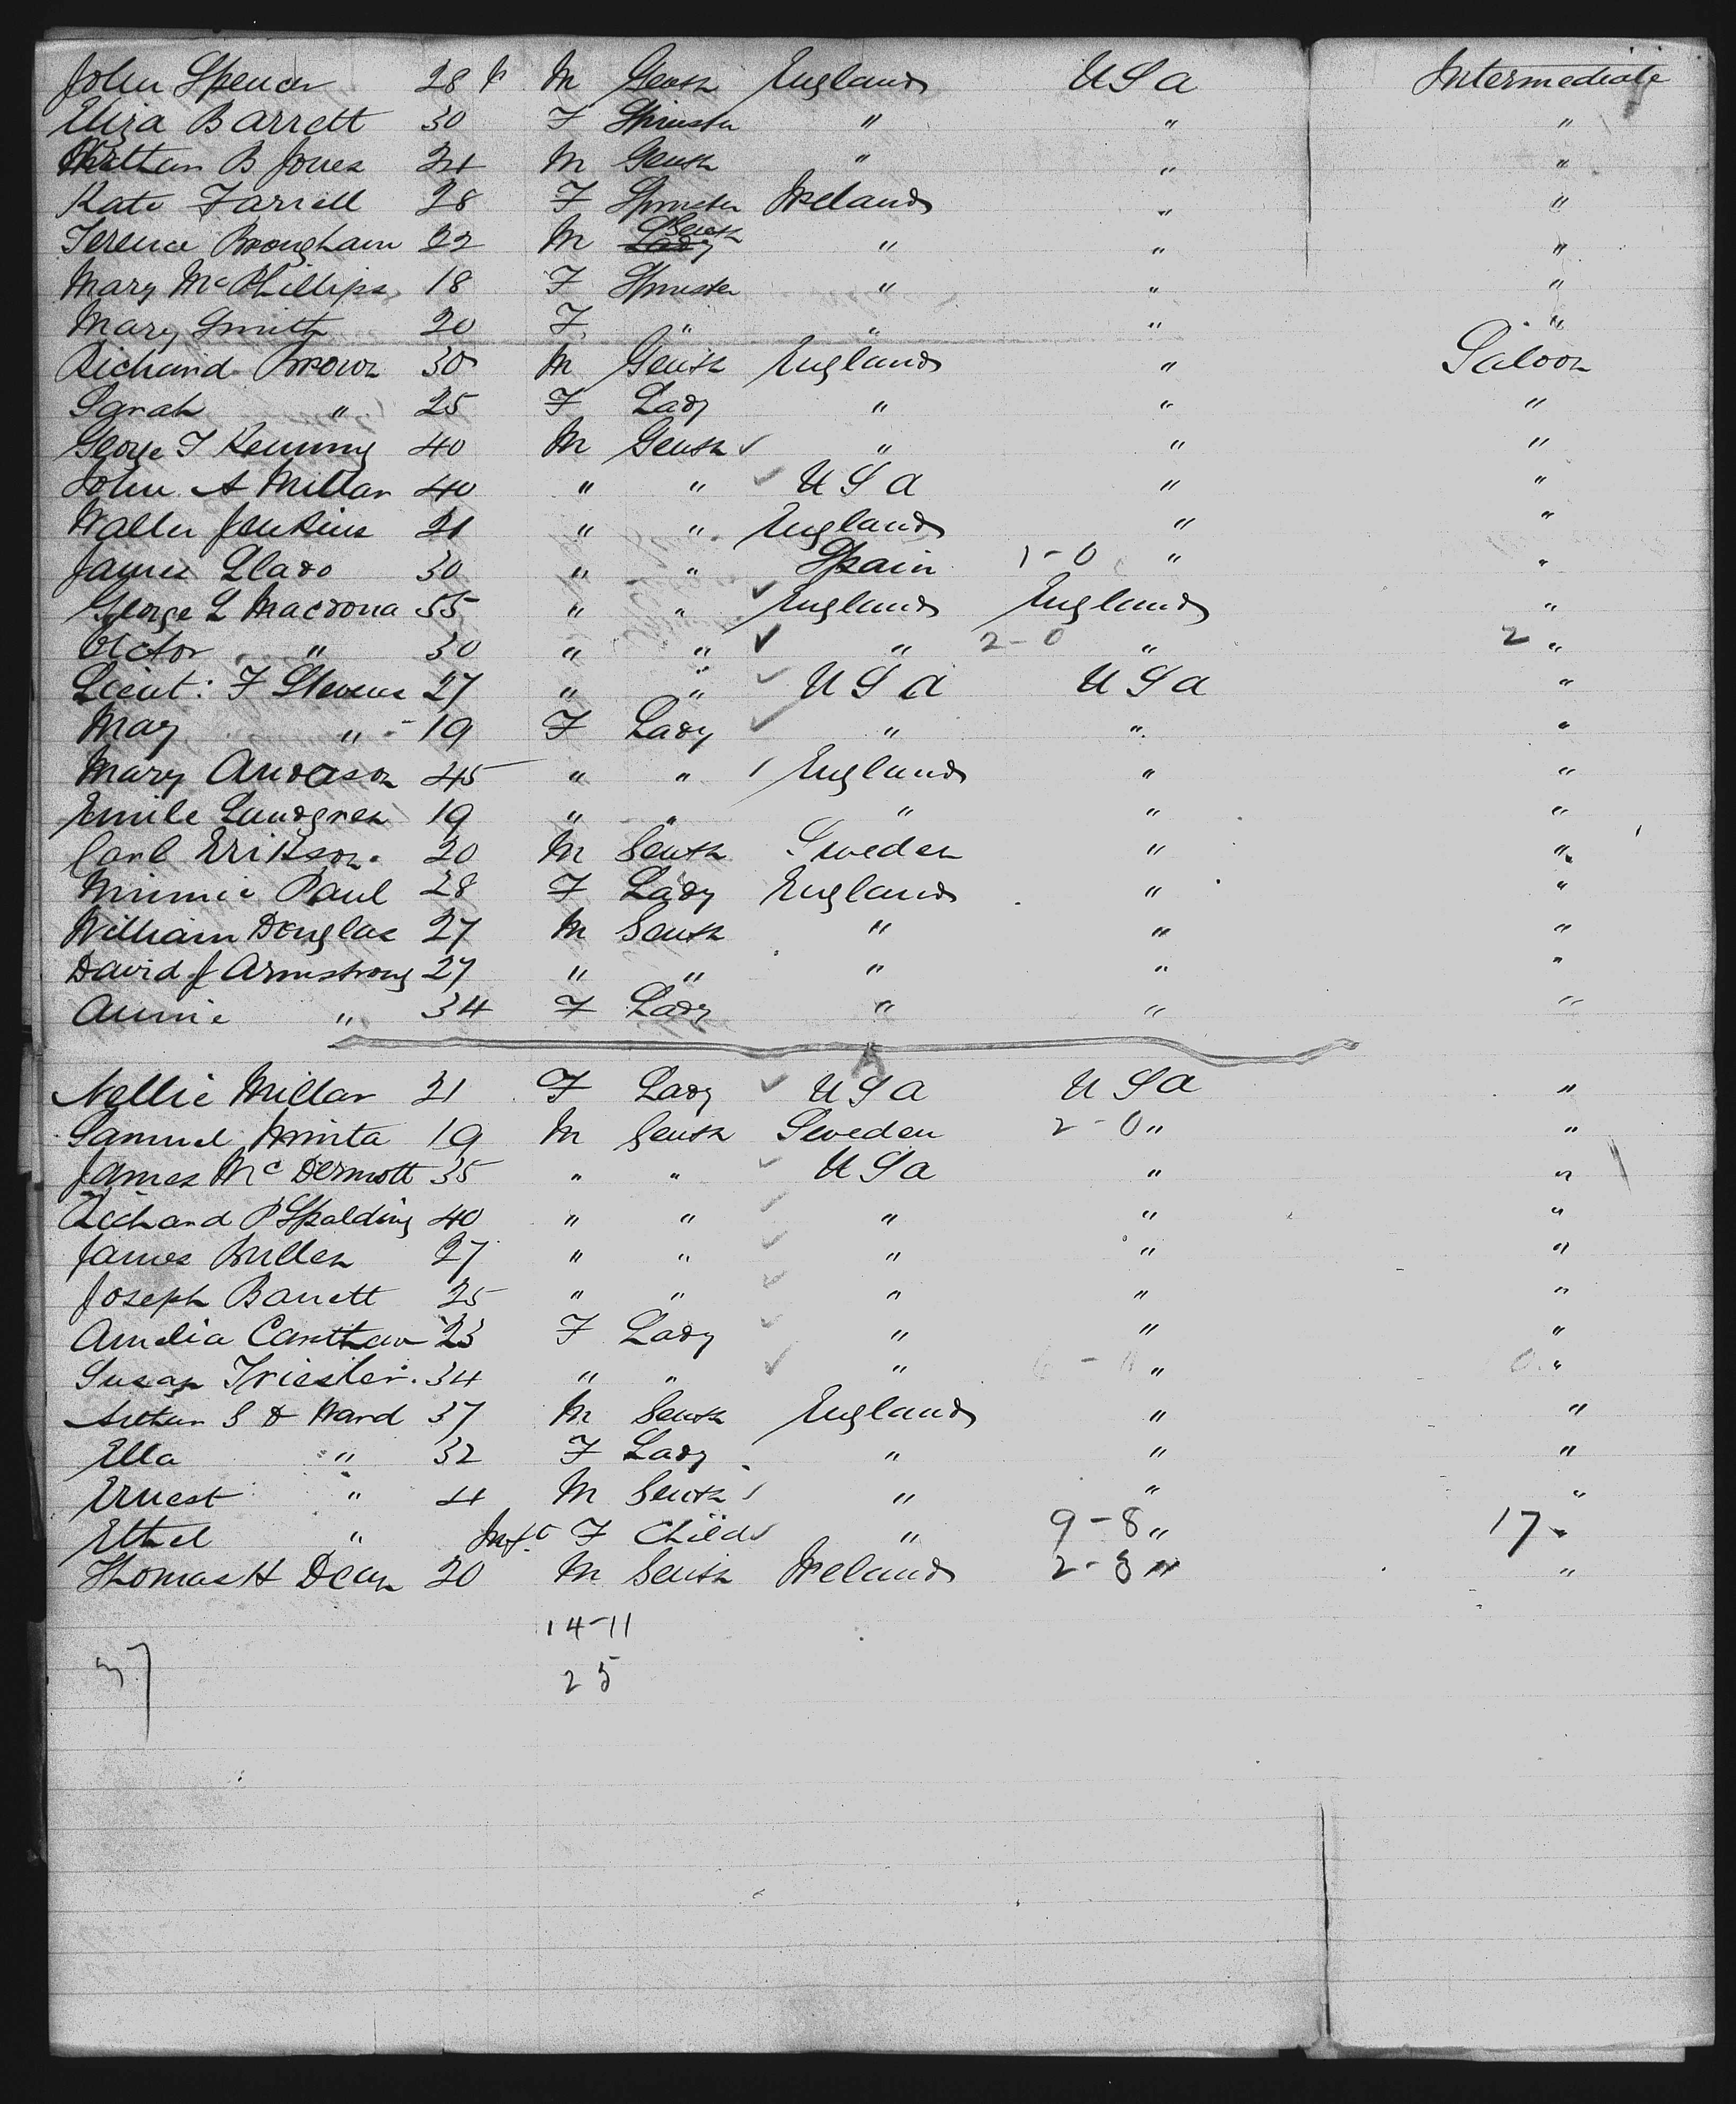 John Spencer 28 M Gentn England USa Intermediate
Eliza Barrett 30 F Spinster " " "
B Jones 24 M Gentn " " "
Kate Farrell 28 F Spinster Ireland " "
Terence Brougham 22 M Gentn " " "
Mary McPhillips 18 F Spinster " " "
Mary Smith 20 F " " " "
Richard Brown 30 M Gentn England " Saloon
Sarah " 25 F Lady " " "
George T 40 M Gentn " " "
John A Millar 40 " " USa " "
Walter Jenkins 21 " " England " "
James Llado 30 " " Spain 1-0 " "
George L Macdona 55 " " England England "
" 30 " " " 2-0 " 2 "
Lieut: F Stevens 27 " " USa USa "
May " 19 F Lady " " "
Mary Anderson 45 " " England " "
Emile Lundgren 19 " " " " "
Carl Erikson. 20 M Gentn Sweden " "
Minnie Paul 28 F Lady England " "
William Douglas 27 M Gentn " " "
David J Armstrong 27 " " " " "
Annie " 34 F Lady " " "
A
Nellie Millar 21 F Lady USa USa "
Samuel 19 M Gentn Sweden 2-0 " "
James McDermott 35 " " USa " "
Richard P Spalding 40 " " " " "
James Bullen 27 " " " " "
Joseph Barrett 25 " " " " "
Amelia 23 F Lady " " "
Susan Triester. 34 " " " " "
Arthur S D Ward 37 M Gentn England " "
Ella " 32 F Lady " " "
Ernest " 4 M Gentn " " "
Ethel " Inft F Child " 9-8 " 17 "
Thomas H Dean 20 M Gentn Ireland 2-3 " "
14-11
37
25